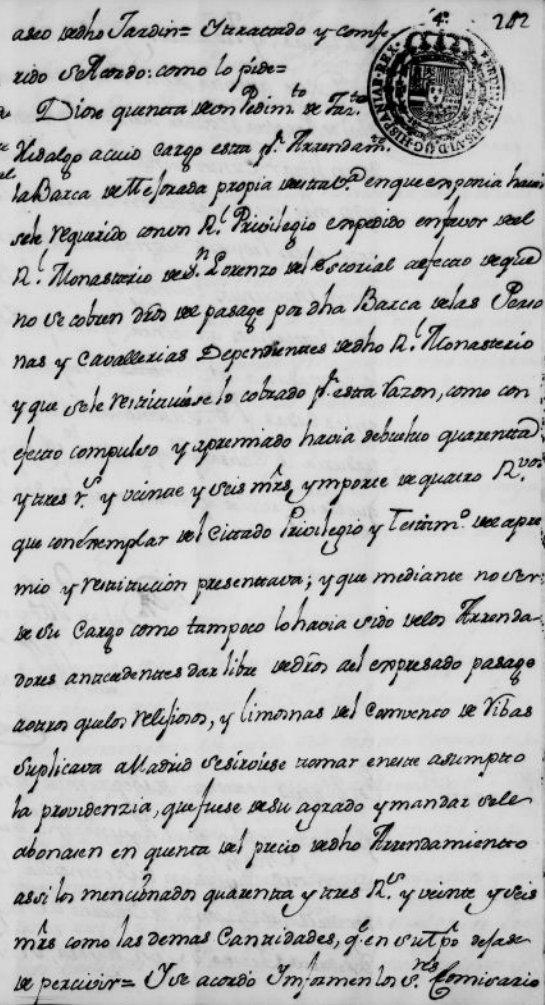 4º 212
aseo dedho Jardin= Y tratado y confe-
rido se Acordo: como lo pide=
Diose quentta de un Pedimto de Franco
Hidalgo a cuio cargo esta pr Arrendamto
la Barca de Mejorada propia de esta Va en que exponia havér
sele requerido con un Rl Privilegio expedido en favor del
Rl Monasterio de Sn Lorenzo del Escorial a efecto de que
no se cobren dros de pasage por dha Barca de las Perso
nas y Cavallerias Dependientes de dho Rl Monasterio
y que se le restituiése lo cobrado pr esta razon, como con
efecto compulso y apremiado havia debuelto quarentta
y tres rs y veinte y seis mrs, ymporte de quatro Rvos
que con exemplar del Cittado Privilegio y Testimo de apre
mio y restitucion presenttava; y que mediante no ser
de su Cargo como tampoco lo havia sido de los Arrenda-
dores antecedenttes dar libre de dros del expresado pasage
a otros que los religiosos, y limosnas del Convento de Ribas
Suplicava a Madrid se sirviése tomar en este asumpto
la providenzia, que fuese de su agrado y mandar se le
abonasen en quenta del precio de dho Arrendamiento
assi los mencionados quarenta y tres Rs y veinte y seis
mrs como las demas Cantidades, qe en su tpo dejase
de percivir= Y se acordo Ynformen los Sres Comisario
FERDINANDUS·VI·D·G·HISPANIAR·REX